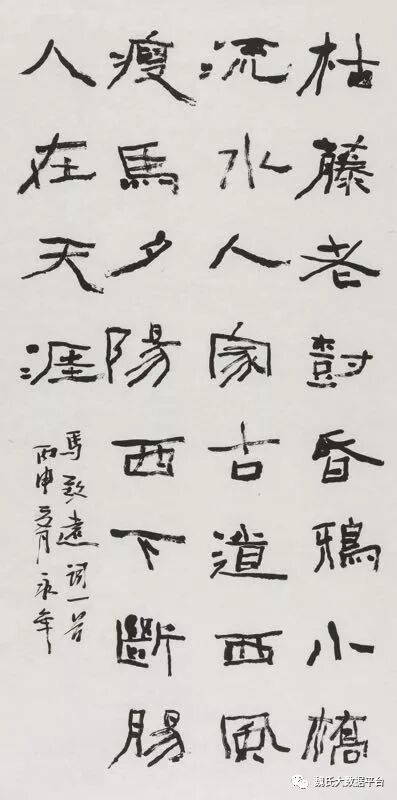 枯藤老尌昏鴉小橋
流水人家古道西風
瘦馬夕陽西下斷腸
人在天涯
馬致遠詞一首
丙申月永年
魏氏大数据平台